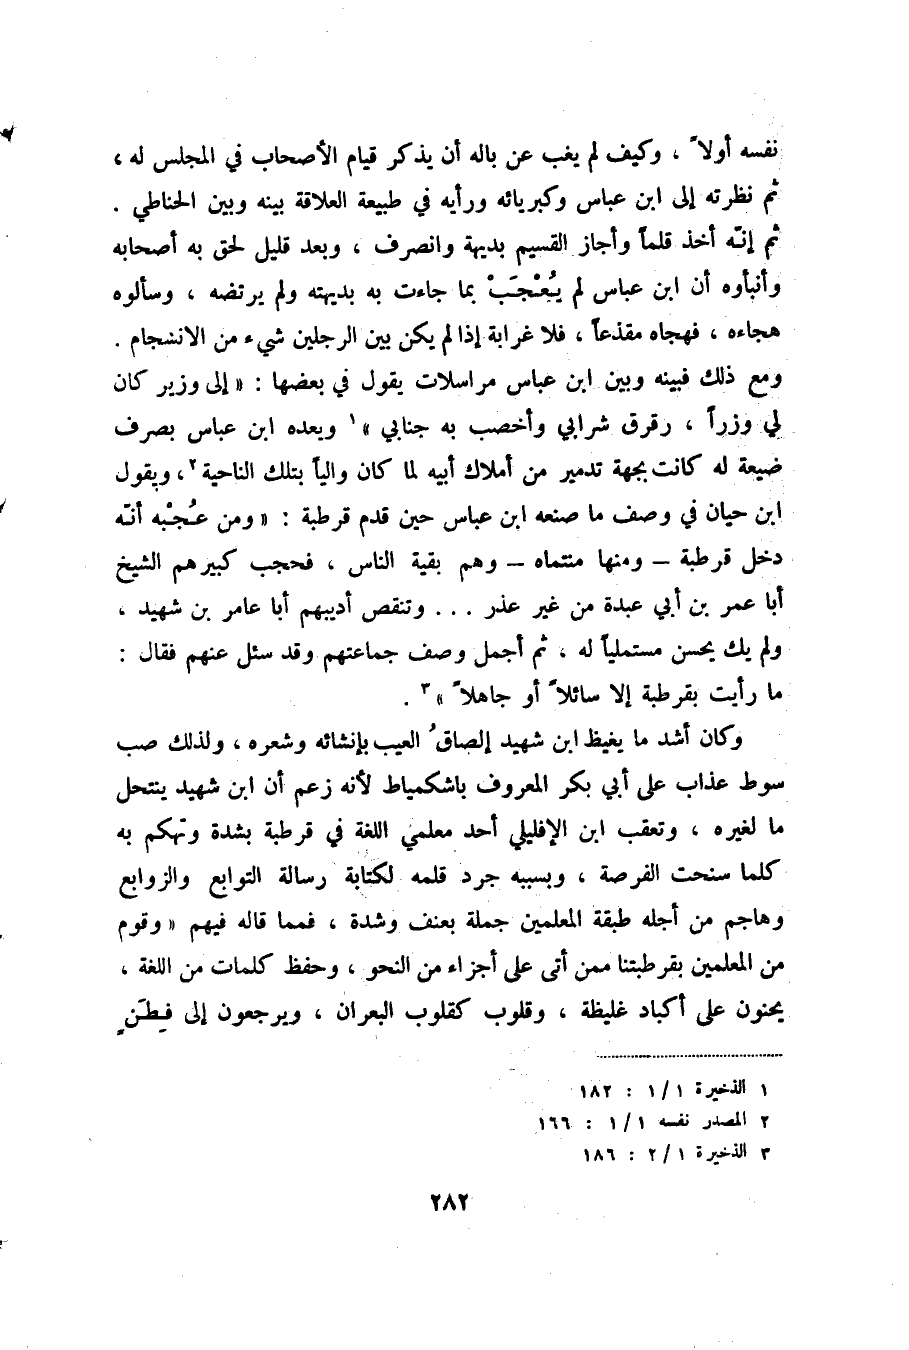 نفسه أولاً ، وكيف لم يغب عن باله أن يذكر قيام الأصحاب في المجلس له ،
ثم نظرته إلى ابن عباس وكبريائه ورأيه في طبيعة العلاقة بينه وبين الحناطي .
ثم إنّه أخذ قلماً وأجاز القسيم بديهة وانصرف ، وبعد قليل لحق به أصحابه
وأنبأوه أن ابن عباس لم يُعْجَبْ بما جاءت به بديهته ولم يرتضه ، وسألوه
هجاءه ، فهجاه مقذعاً ، فلا غرابة إذا لم يكن بين الرجلين شيء من الانسجام .
ومع ذلك فبينه وبين ابن عباس مراسلات يقول في بعضها : « إلى وزير كان
لي وزراً ، رقرق شرابي وأخصب به جنابي »١ ويعده ابن عباس بصرف
ضيعة له كانت بجهة تدمير من أملاك أبيه لما كان والياً بتلك الناحية٢ ، ويقول
ابن حيان في وصف ما صنعه ابن عباس حين قدم قرطبة : « ومن عُجْبه أنّه
دخل قرطبة – ومنها منتماه – وهم بقية الناس ، فحجب كبيرهم الشيخ
أبا عمر بن أبي عبدة من غير عذر ... وتنقص أديبهم أبا عامر بن شهيد ،
ولم يك يحسن مستملياً له ، ثم أجمل وصف جماعتهم وقد سئل عنهم فقال :
ما رأيت بقرطبة إلا سائلاً أو جاهلاً »٣ .
وكان أشد ما يغيظ ابن شهيد إلصاقُ العيب بإنشائه وشعره ، ولذلك صب
سوط عذاب على أبي بكر المعروف باشكمياط لأنه زعم أن ابن شهيد ينتحل
ما لغيره ، وتعقب ابن الإفليلي أحد معلمي اللغة في قرطبة بشدة وتهكم به
كلما سنحت الفرصة ، وبسببه جرد قلمه لكتابة رسالة التوابع والزوابع
وهاجم من أجله طبقة المعلمين جملة بعنف وشدة ، فمما قاله فيهم « وقوم
من المعلمين بقرطبتنا ممن أتى على أجزاء من النحو ، وحفظ كلمات من اللغة ،
يحنون على أكباد غليظة ، وقلوب كقلوب البعران ، ويرجعون إلى فِطَنٍ
١ الذخيرة ١/١ : ١٨٢
٢ المصدر نفسه ١/١ : ١٦٦
٣ الذخيرة ٢/١ : ١٨٦
٢٨٢